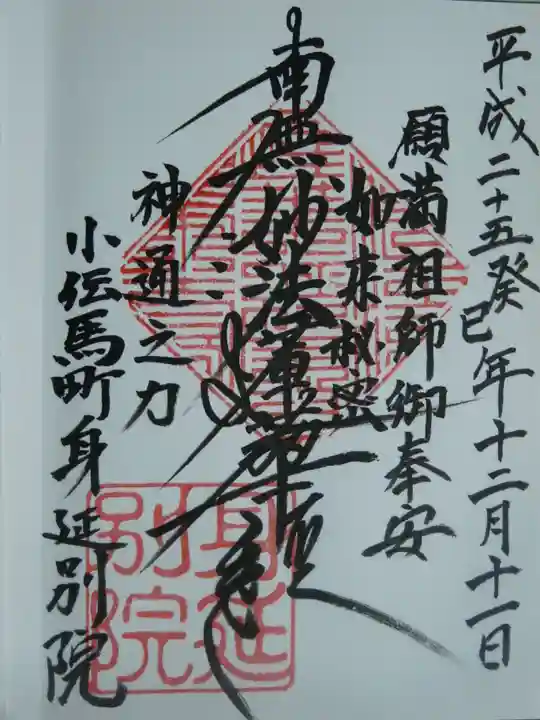 平成二十五癸巳年十二月十一日
願満祖師御奉安
如来秘密
南無妙法蓮華経
神通之力
小伝馬町身延別院
身延
別院